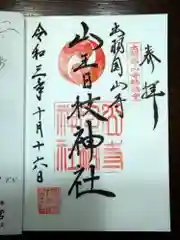 奉拝
出羽國山寺
山王日枝神社
令和三年十月十六日